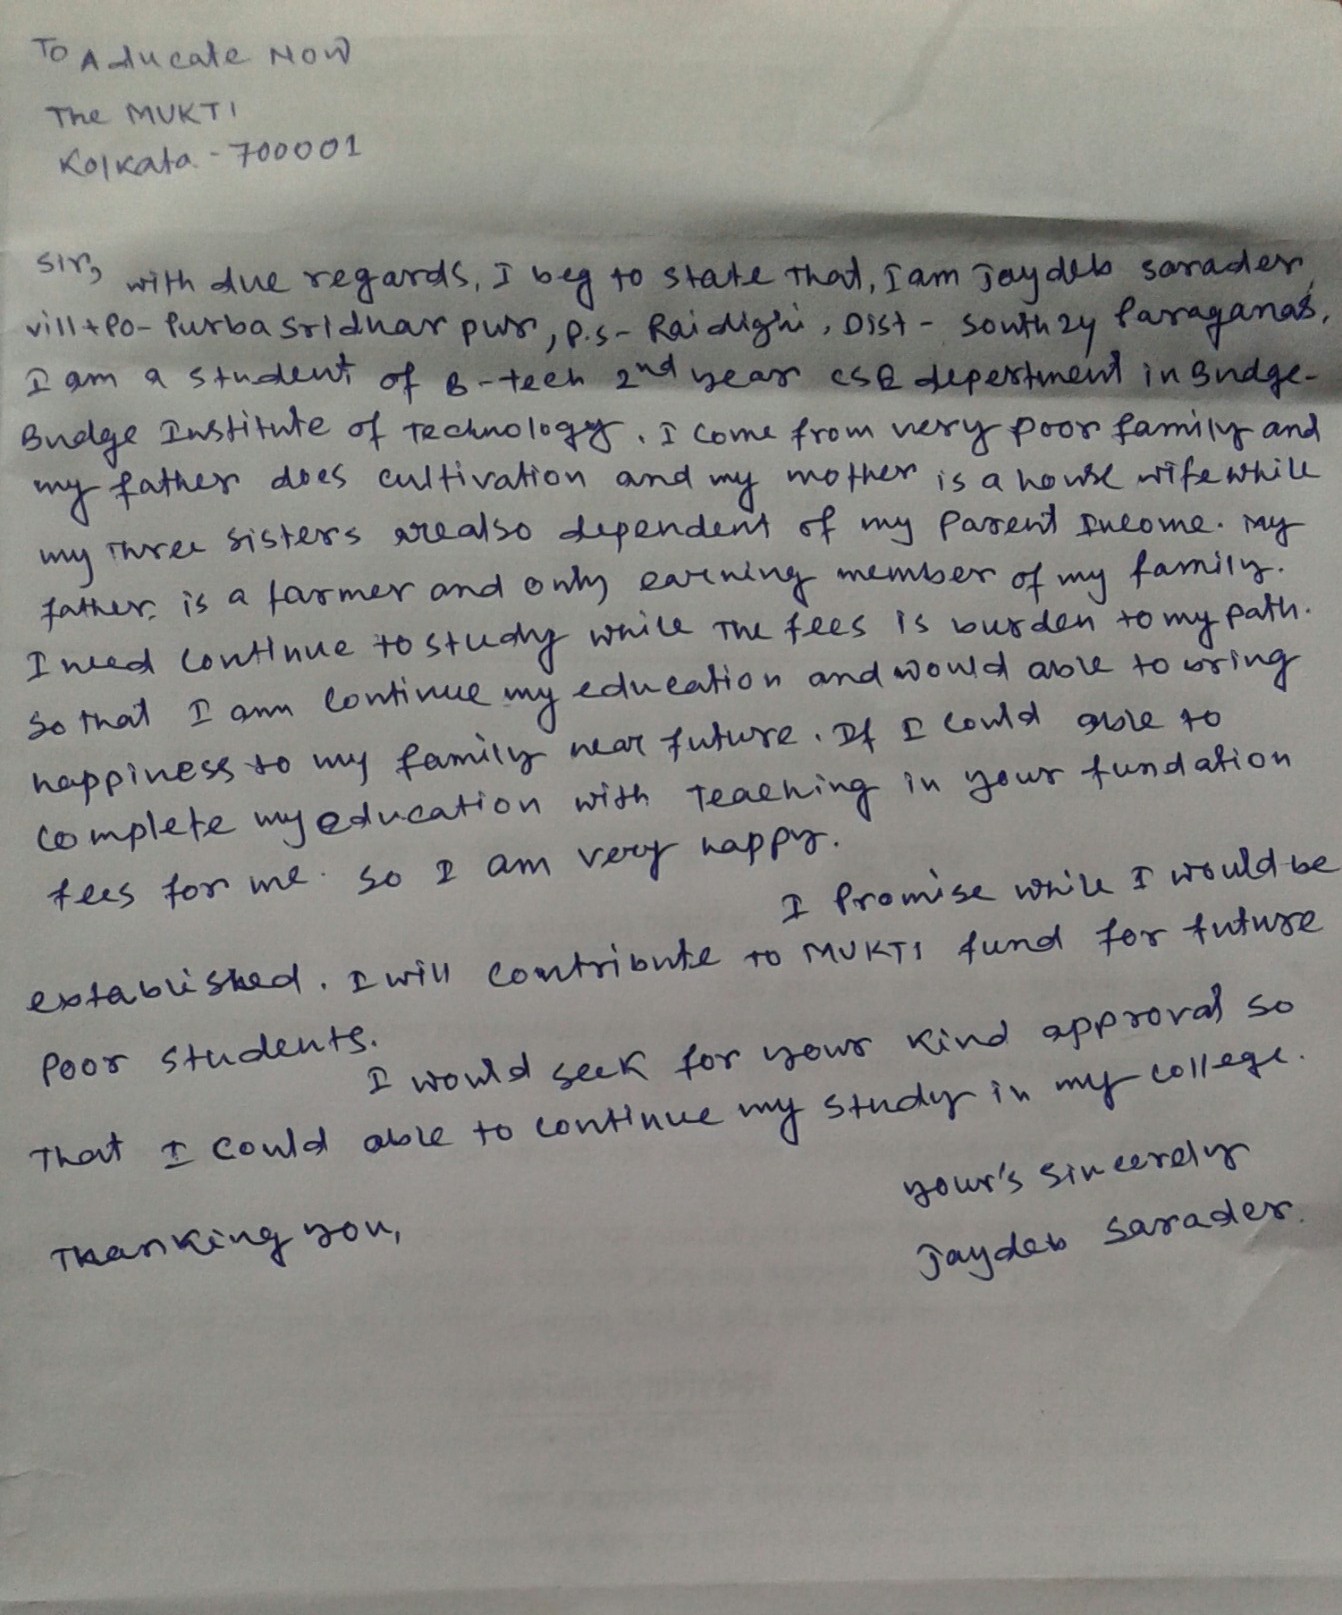 To Aducate Now
The MUKTI
Kolkata - 700001
Sir,
with due regards, I beg to state that, I am Jaydeb Sarader,
vill+Po- Purba Sridhar pur, P.s- Raidighi, Dist- South 24 Paraganas,
I am a student of B-tech 2nd year CSE depertment in Budge-
Budge Institute of Technology. I come from very poor family and
my father does cultivation and my mother is a house wife while
my three sisters are also dependent of my Parent Income. My
father is a farmer and only earning member of my family.
I need continue to study while the fees is burden to my path.
So that I am continue my education and would able to bring
happiness to my family near future. If I could able to
complete my education with teaching in your fundation
fees for me. So I am very happy.
I Promise while I would be
established. I will contribute to MUKTI fund for future
Poor students.
I would seek for your kind approval so
that I could able to continue my study in my college.
your's sincerely
Thanking you,
Jaydeb Sarader.